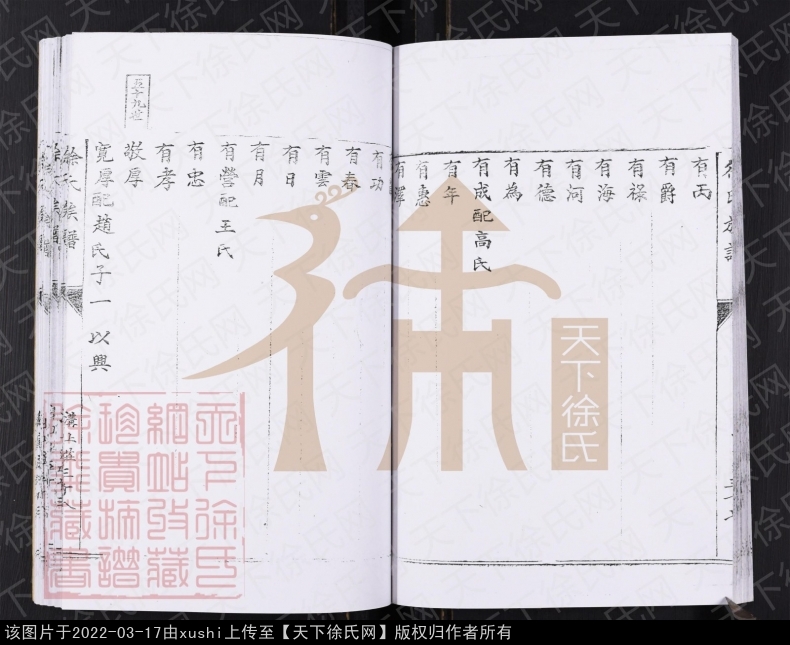 徐氏族譜
有丙
有爵
有祿
有海
有河
有德
有為
有成配高氏
有年
有惠
有澤
有功
有春
有雲
有日
有月
有營配王氏
有忠
有孝
五十九世
敬厚
寬厚配趙氏子一 以興
徐氏族譜
天下徐氏
天下徐氏網站收藏
天下徐氏网
该图片于2022-03-17由xushi上传至【天下徐氏网】版权归作者所有